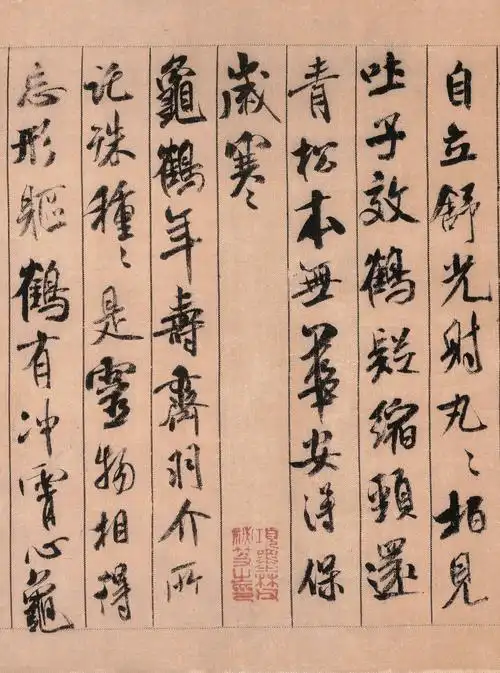 自立舒光射丸〻柏見
吐子效鶴疑縮頸還
青松本無華安得保
歲寒〻
龜鶴年壽齊羽介所
託殊種〻是靈物相得
忘形軀鶴有冲霄心龜
項墨林父
秘笈之印